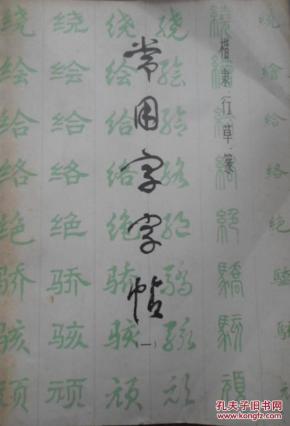 楷隶行草篆
常用字字帖
(一)
绕绘给络绝骄骇顽
绕绘给络绝骄骇顽
绕绘给络绝骄骇顽
绕绘给络绝骄骇顽
繞繪給絡絕驕駭頑
孔夫子旧书网